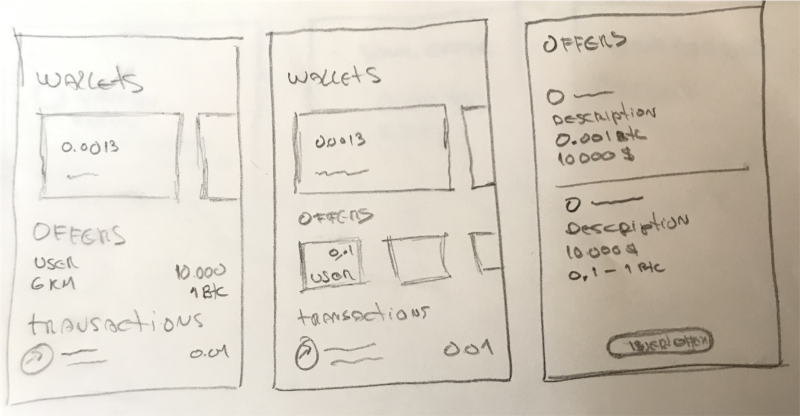 WALLETS
0.0013
OFFERS
USER 10.000
6 KM 1 Btc
transactions
0.01
WALLETS
0.0013
OFFERS
0,1
USER
transactions
0.01
OFFERS
Description
0.001 Btc
10000 $
Description
10.000$
0,1 - 1 Btc